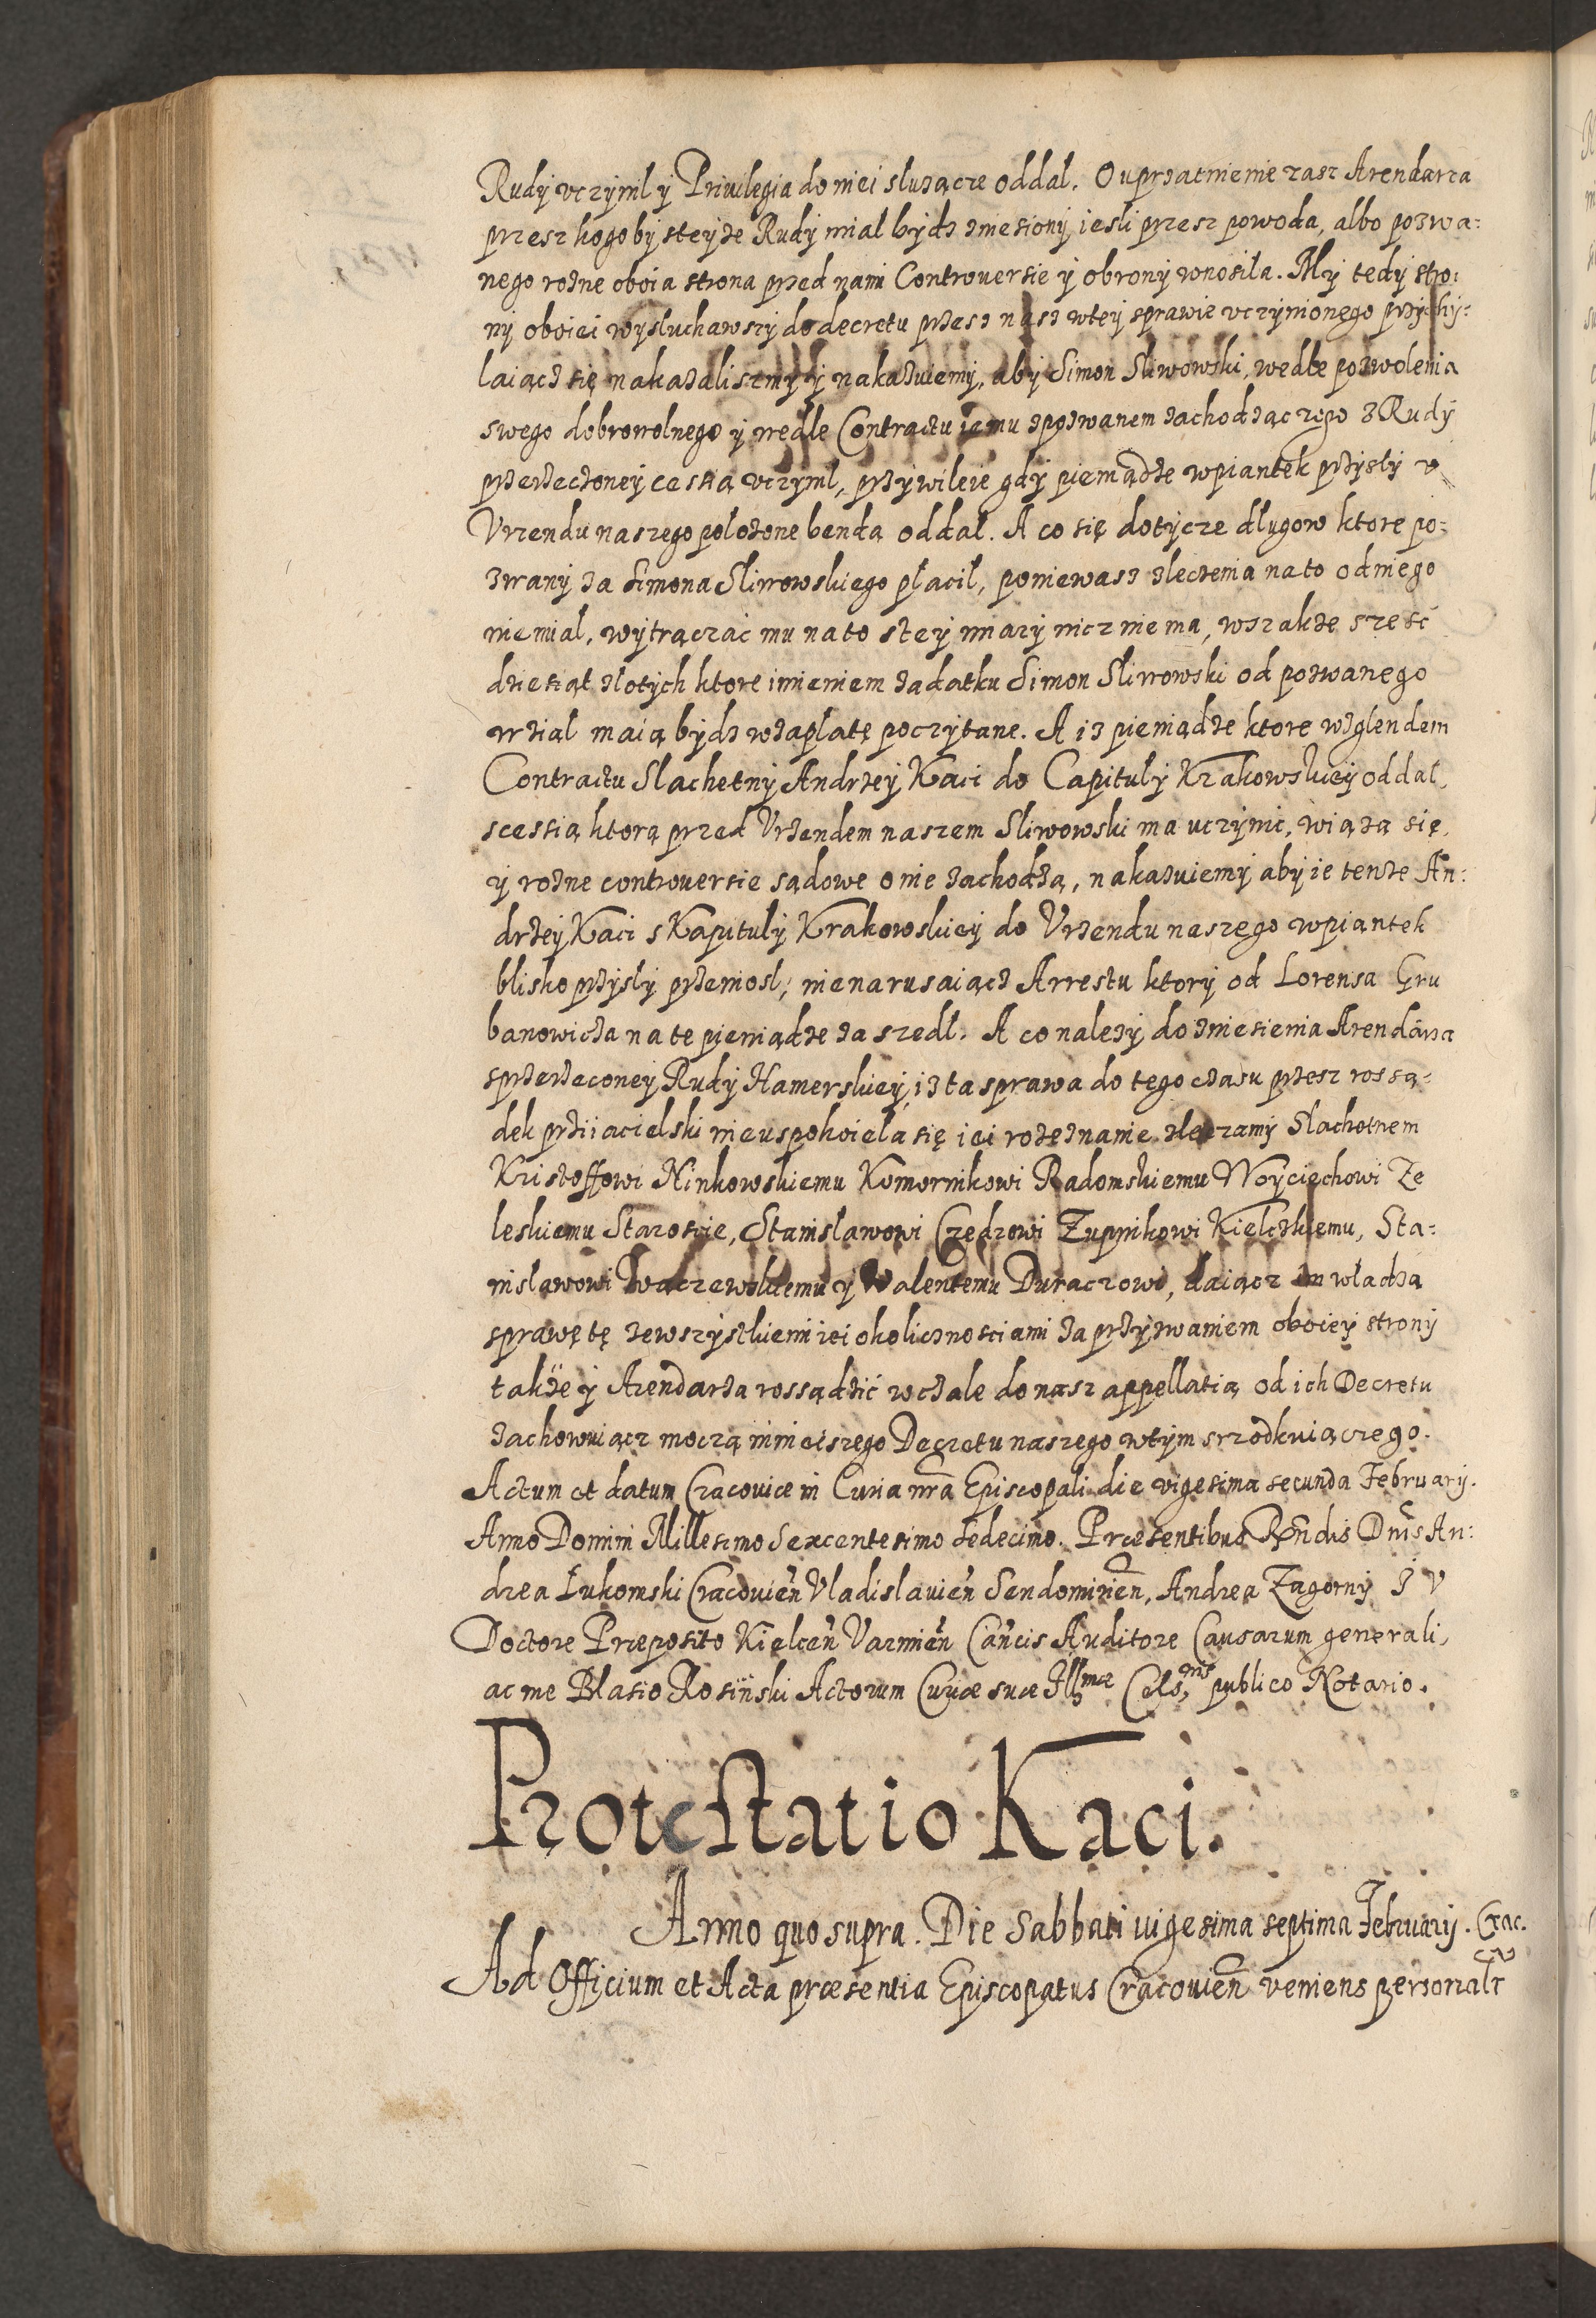 Rudy vczynil y Priuilegia do niei sluzącze oddal. O uprzatnienie zasz Arendarza
przesz kogoby steyże Rudy mial bydz zniesiony iesli przesz powoda, albo pozwa:
nego rożne oboia strona przed nami Controuersie y obrony wnosila. My tedy stro:
ny oboiei wysluchawszy do decretu przesz nasz wtey sprawie vczynionego przychy:
laiącz się nakazaliszmy y nakazuiemy, aby Simon Sliwowski, wedle pozwolenia
swego dobrowolnego y wedle Contractu iemu zpozwanem zachodzączego z Rudy
przerzeczoney cessią vczynil, przywileie gdy pieniądze wpiantek przysly v
Vrzendu naszego polozone benda oddal. A co się dotycze dlugow ktore po:
zwany za Simona Sliwowskiego placil, poniewasz zleczenia na to od niego
nie mial, wytrączac mu na to stey miary nicz nie ma, wszakże szesc
dziesiąt zlotych ktore imieniem zadatku Simon Sliwowski od pozwanego
wzial maią bydz wzaplatę poczytane. A iz pieniądze ktore wzglendem
Contractu Slachetny Andrzey Kaci do Capituly Krakowskiey oddal,
scessią ktorą przed Vrzendem naszem Sliwowski ma uczynic, wiążą się,
y rożne controuersie sądowe o nie zachodzą, nakazuiemy aby ie tenże An:
drzey Kaci s Kapituly Krakowskiey do Vrzendu naszego wpiantek
blisko przysly przeniosl, nienarusaiącz Arrestu ktory od Lorensa Gru
banowicza na te pieniądze zaszedl. A co nalezy do zniesienia Arendarza
sprzerzeconey Rudy Hamerskiey, iz ta sprawa do tego czasu przesz rossą:
dek prziiacielski nieuspokoiela się iei rozeznanie zleczamy Slachetnem
Kristoffowi Ninkowskiemu Komornikowi Radomskiemu Woyciechowi Ze
leskiemu Staroscie, Stanislawowi Czedrowi Zupnikowi Kielczkiemu, Sta:
nislawowi Waczewskiemu y Walentemu Duraczowi, daiącz im wladzą
sprawę tę zewszystkiemi iei okolicznosciami za przyzwaniem oboiey strony
także y Arendarza rossądzić wczale do nasz appellatią od ich Decretu
zachowuiącz moczą ninieiszego Decretu naszego wtym srzodkuiączego.
Actum et datum Cracoviæ in Curia nra Episcopali die vigesima secunda February.
Anno Domini Millesimo Sexcentesimo Sedecimo. Præsentibus Rndis Dnis An:
drea Łukomski Cracovien Vladislavien Sendomirien, Andrea Zagorny I V
Doctore Præposito Kielcen Varmien Cancis Auditore Causarum generali,
ac me Blasio Rosinski Actorum Curiæ suæ Illmæ Cels: publico Notario.
Protestatio Kaci.
Anno quo supra. Die Sabbati vigesima septima February. Crac.
Ad Officium et Acta præsentia Episcopatus Cracovien veniens personalr